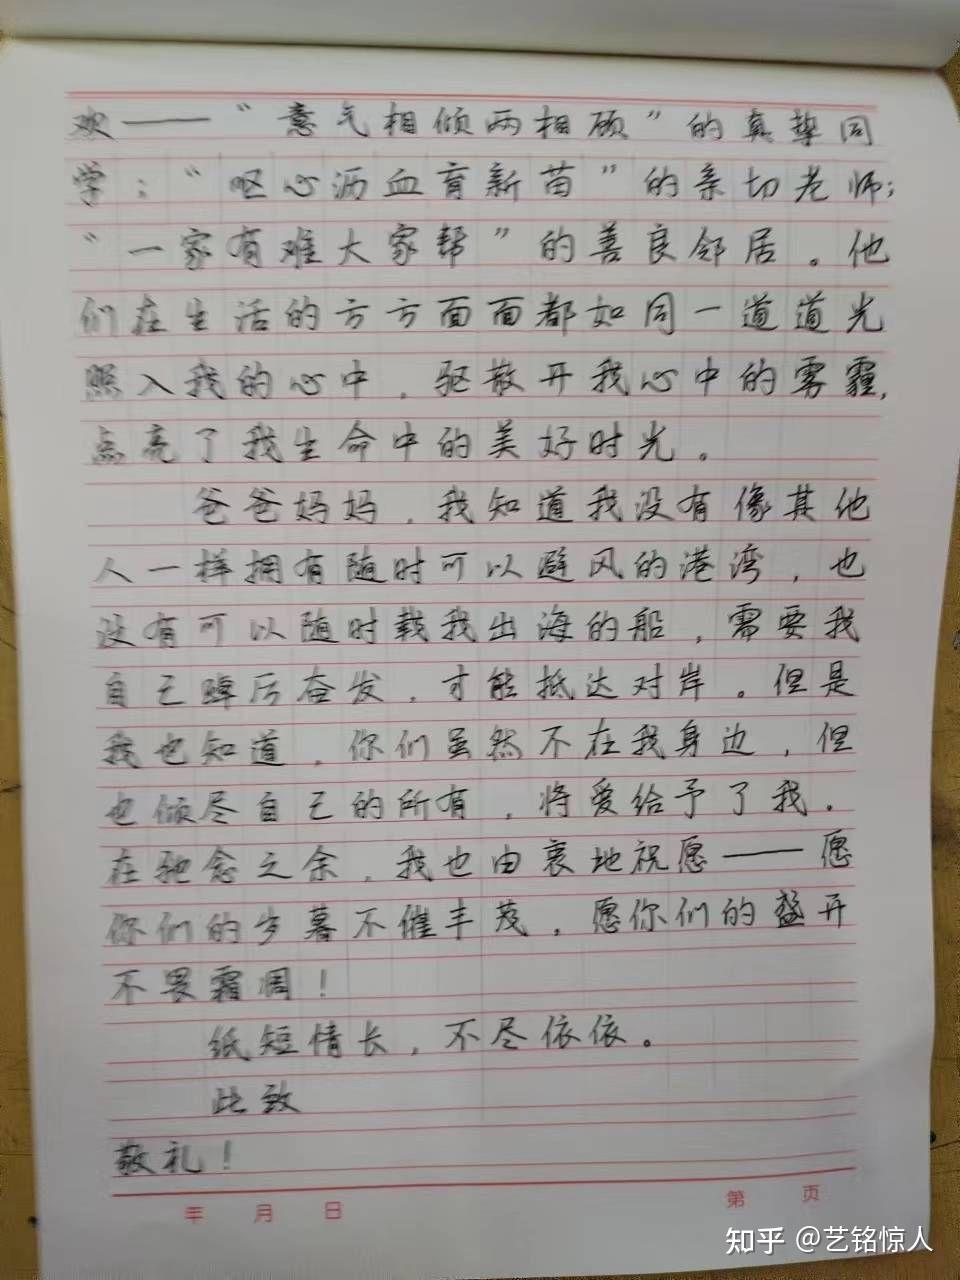 欢——“意气相倾两相顾”的真挚同
学；“呕心沥血育新苗”的亲切老师；
“一家有难大家帮”的善良邻居。他
们在生活的方方面面都如同一道道光
照入我的心中，驱散开我心中的雾霾，
点亮了我生命中的美好时光。
爸爸妈妈，我知道我没有像其他
人一样拥有随时可以避风的港湾，也
没有可以随时载我出海的船，需要我
自己踔厉奋发，才能抵达对岸。但是
我也知道，你们虽然不在我身边，但
也倾尽自己的所有，将爱给予了我。
在驰念之余，我也由衷地祝愿——愿
你们的岁暮不催丰茂，愿你们的盛开
不畏霜凋！
纸短情长，不尽依依。
此致
敬礼！
年 月 日 第 页
知乎 @艺铭惊人